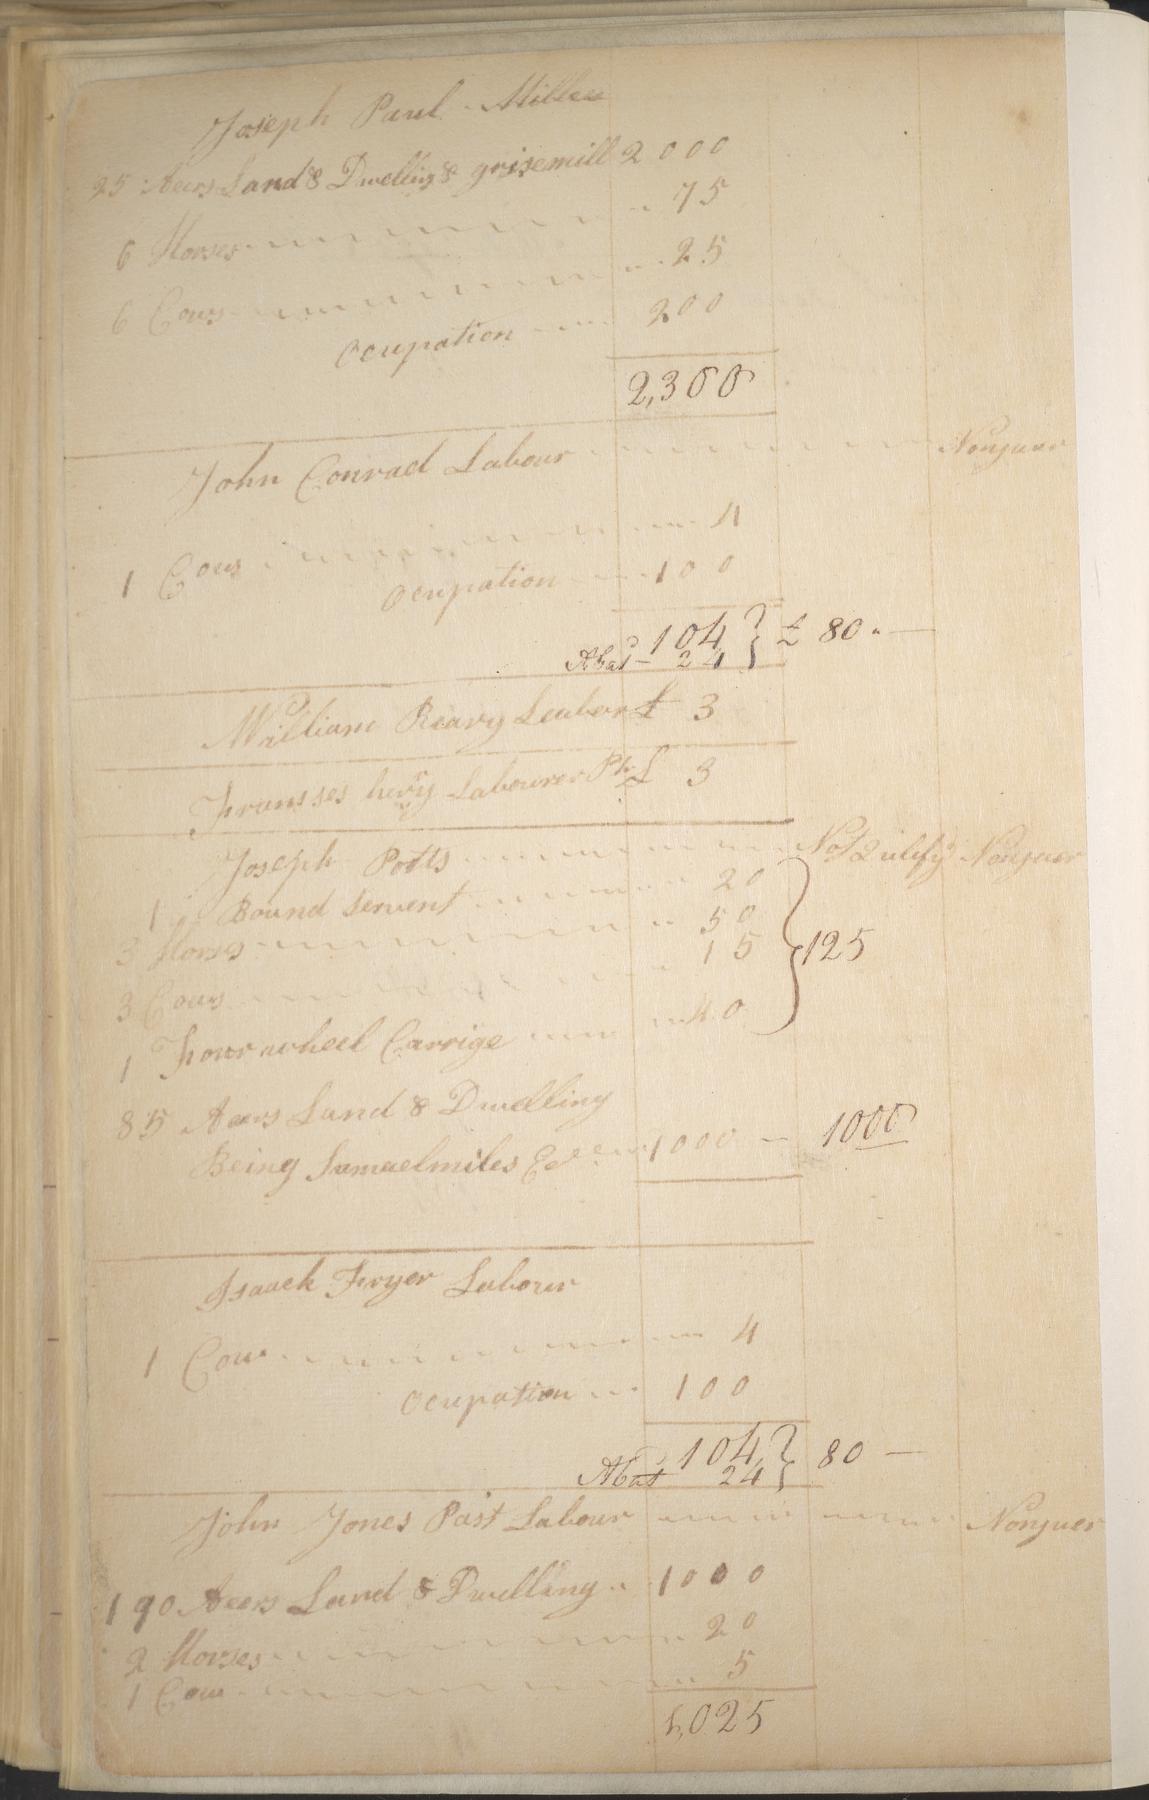 Joseph Paul Miller
25 Acers Land & Dwelling & grisemill 2000
6 Horses 75
6 Cows 25
Ocupation 200
2,300
John Conrad Labour Nonjuer
1 Cow 4
Ocupation 100
104 } £ 80 " —
Abat 24
William Reavy Leaborr £ 3
Fransses Labourer £ 3
Joseph Potts Not Nonjuer
1 Bound servent 20
3 Horses 50
3 Cows 15 } 125
1 Four wheel Carrige 40
85 Acers Land & Dwelling
Being Samuelmiles 1000 1000
Isaack Fryer Labour
1 Cow 4
Ocupation 100
104 } 80 —
Abat 24
John Jones Past Labour Nonjuer
190 Acers Land & Dwelling 1000
2 Horses 20
1 Cow 5
1,025